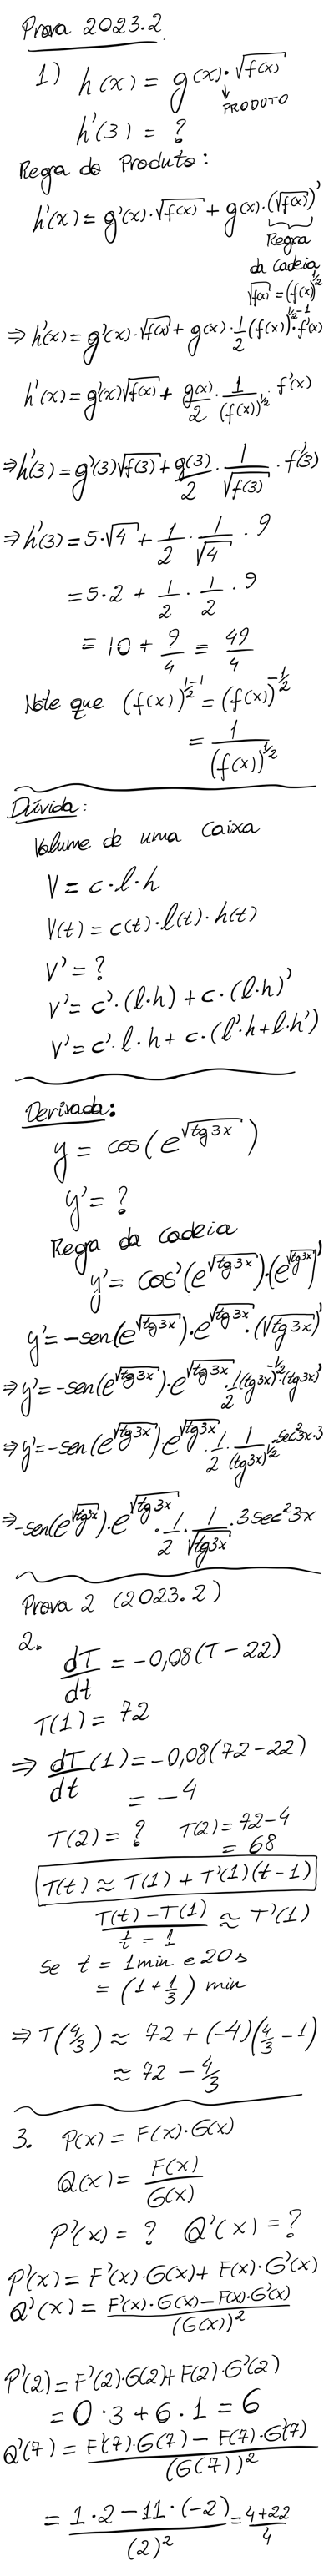 Prova 2023.2
1) h(x) = g(x)·√f(x)
↓
PRODUTO
h'(3) = ?
Regra do Produto:
h'(x) = g'(x)·√f(x) + g(x)·(√f(x))'
Regra
da Cadeia
√f(x) = (f(x))^1/2
⇒ h'(x) = g'(x)·√f(x) + g(x)·1/2 (f(x))^(1/2-1)·f'(x)
h'(x) = g'(x)√f(x) + g(x)/2 · 1/(f(x))^1/2 · f'(x)
⇒ h'(3) = g'(3)√f(3) + g(3)/2 · 1/√f(3) · f'(3)
⇒ h'(3) = 5·√4 + 1/2 · 1/√4 · 9
= 5·2 + 1/2 · 1/2 · 9
= 10 + 9/4 = 49/4
Note que (f(x))^(1/2-1) = (f(x))^(-1/2)
= 1/(f(x))^1/2
Dúvida:
Volume de uma caixa
V = c·l·h
V(t) = c(t)·l(t)·h(t)
V' = ?
V' = c'·(l·h) + c·(l·h)'
V' = c'·l·h + c·(l'·h + l·h')
Derivada:
y = cos(e^√tg3x)
y' = ?
Regra da cadeia
y' = cos'(e^√tg3x)·(e^√tg3x)'
y' = -sen(e^√tg3x)·e^√tg3x·(√tg3x)'
⇒ y' = -sen(e^√tg3x)·e^√tg3x·1/2(tg3x)^(-1/2)·(tg3x)'
⇒ y' = -sen(e^√tg3x)·e^√tg3x·1/2·1/(tg3x)^1/2·sec²3x·3
⇒ -sen(e^√tg3x)·e^√tg3x·1/2·1/√tg3x·3sec²3x
Prova 2 (2023.2)
2.
dT/dt = -0,08(T-22)
T(1) = 72
⇒ dT/dt (1) = -0,08(72-22)
= -4
T(2) = ? T(2) = 72-4
= 68
T(t) ≈ T(1) + T'(1)(t-1)
T(t) - T(1)/t - 1 ≈ T'(1)
se t = 1min e 20s
= (1 + 1/3) min
⇒ T(4/3) ≈ 72 + (-4)(4/3 - 1)
≈ 72 - 4/3
3. P(x) = F(x)·G(x)
Q(x) = F(x)/G(x)
P'(x) = ? Q'(x) = ?
P'(x) = F'(x)·G(x) + F(x)·G'(x)
Q'(x) = F'(x)·G(x) - F(x)·G'(x)/(G(x))²
P'(2) = F'(2)·G(2) + F(2)·G'(2)
= 0·3 + 6·1 = 6
Q'(7) = F'(7)·G(7) - F(7)·G'(7)/(G(7))²
= 1·2 - 11·(-2)/(2)² = 4+22/4